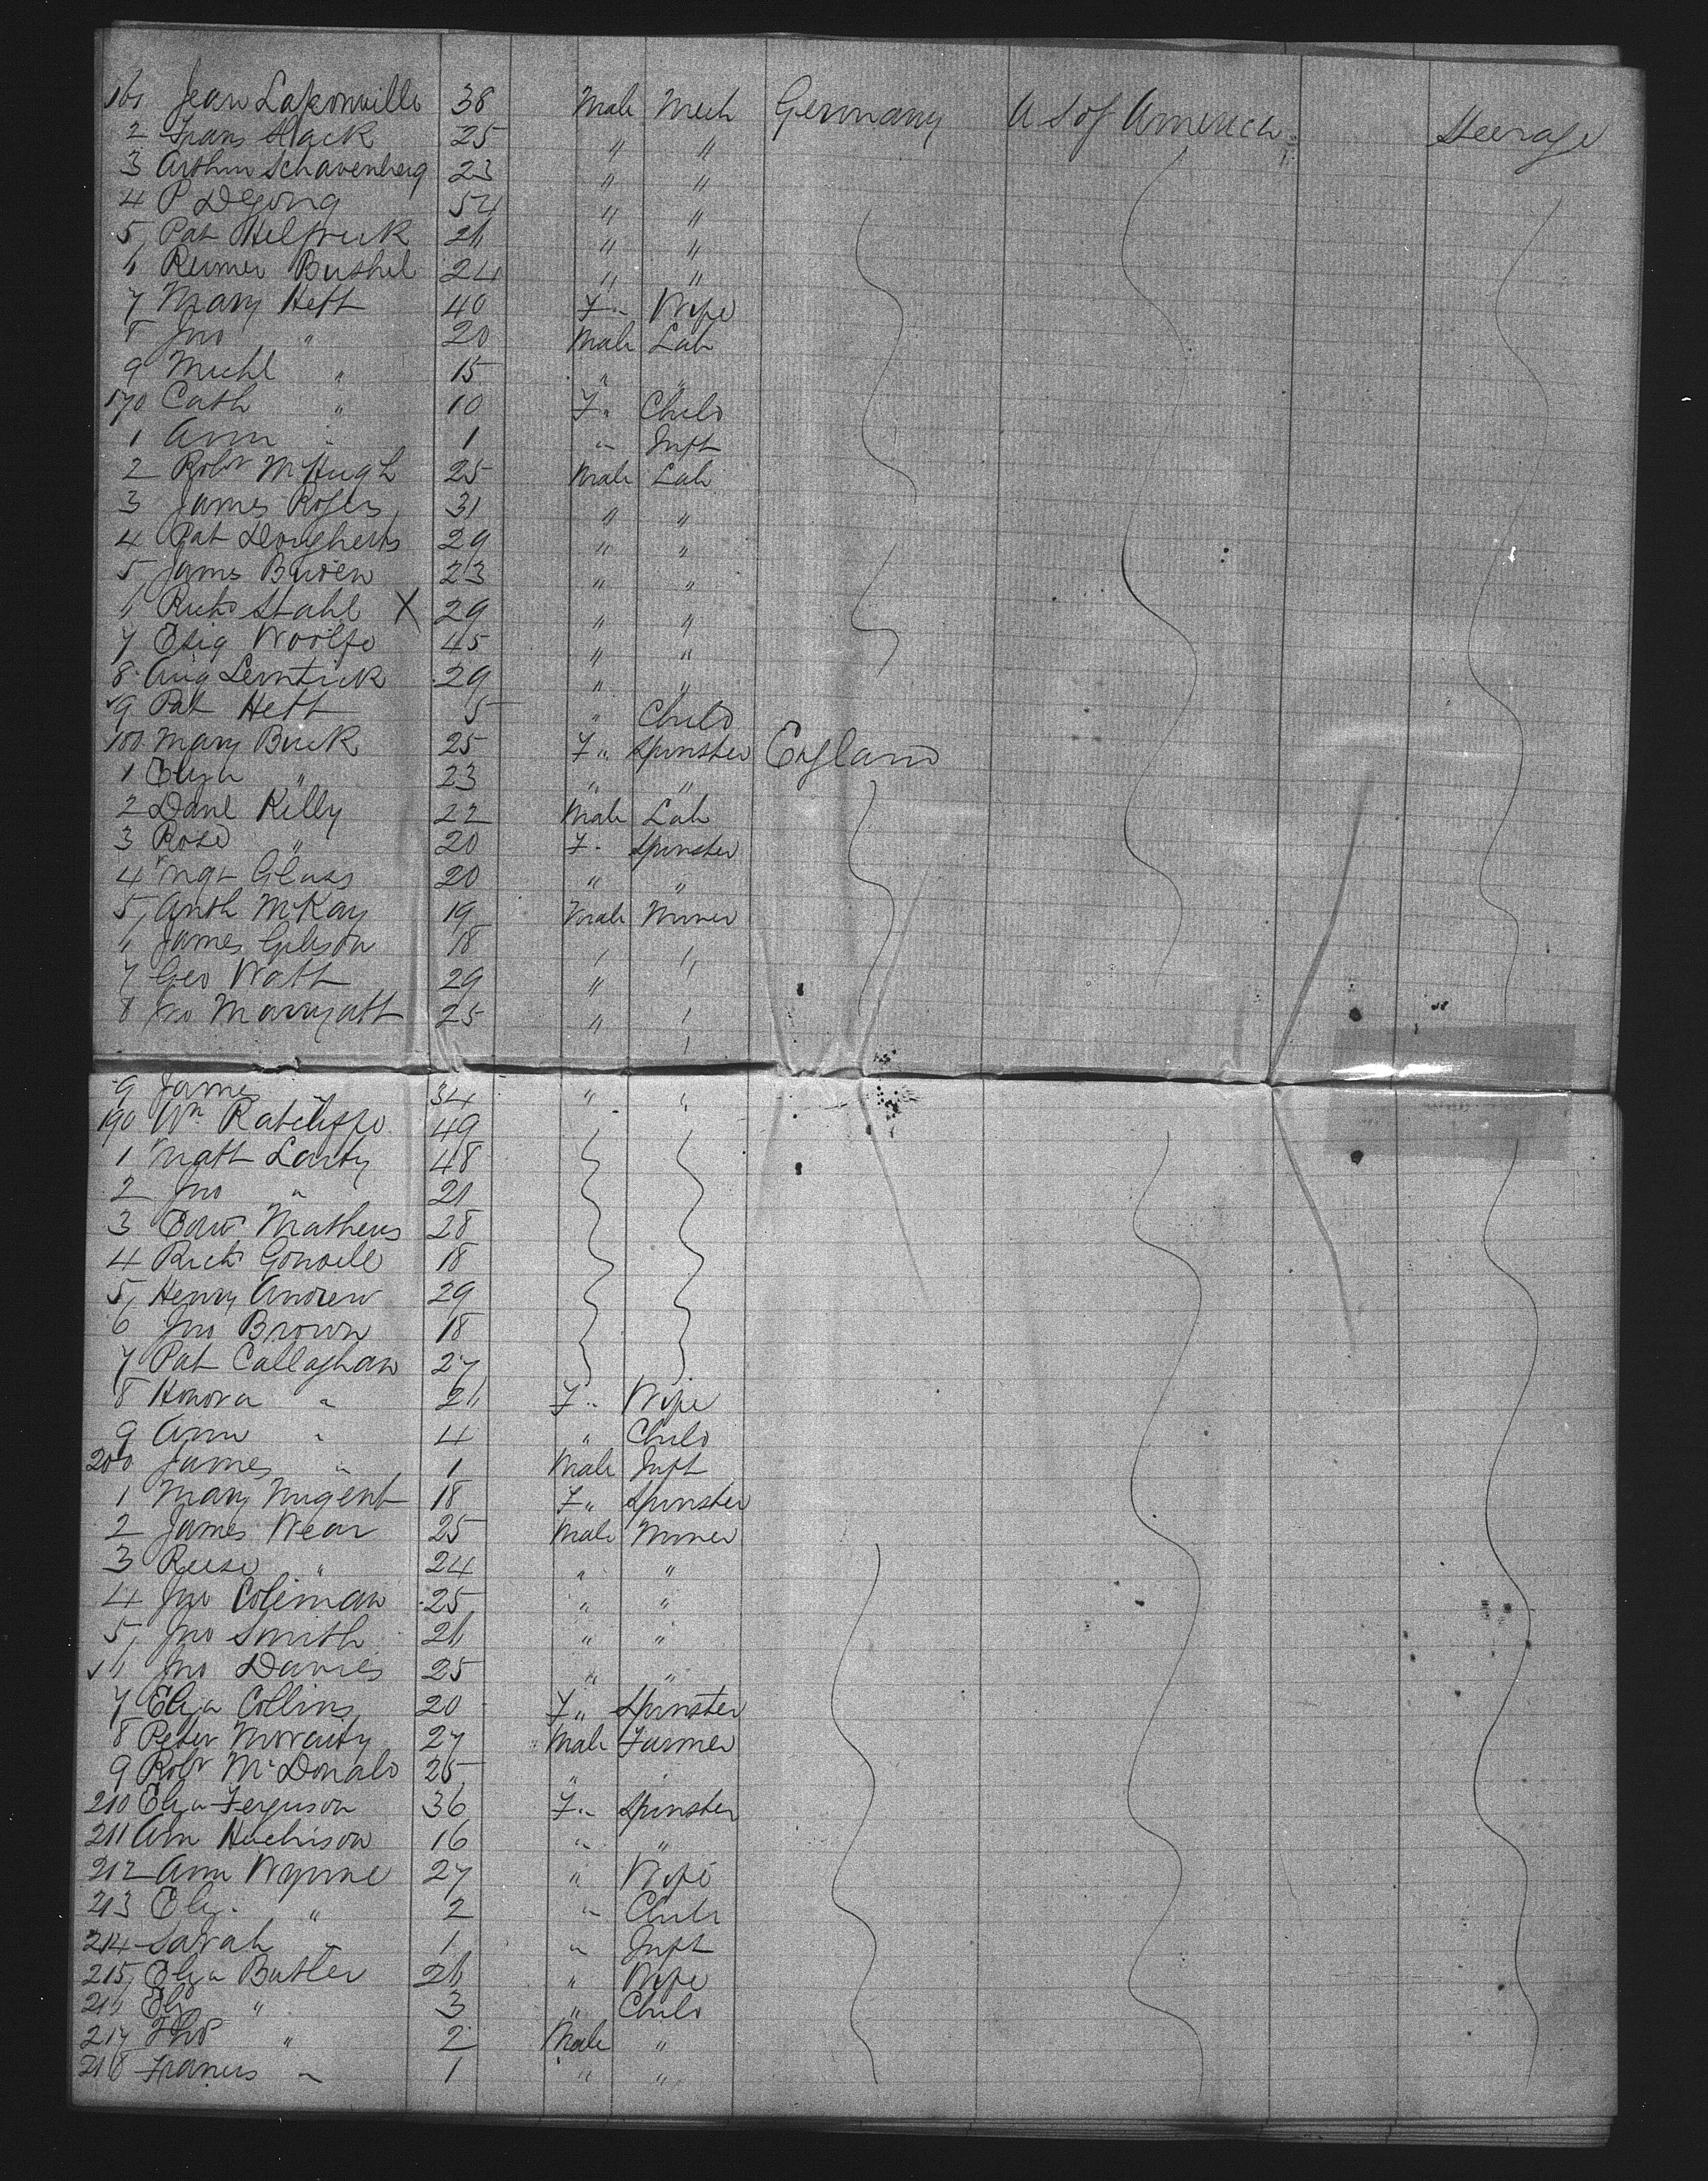 161 Jean Lakonville 38 Male Mech Germany U S of America Steerage
2 Frans Slack 25 " "
3 Arthur Schavenberg 23 " "
4 P DeJong 54 " "
5 Pat Helfrick 26 " "
6 Reimer Bushel 24 " "
7 Mary Heft 40 F " Wife
8 Jno " 20 Male Lab
9 Michl " 15 " "
170 Cath " 10 F " Child
1 Ann " 1 " Inft
2 Robt McHugh 25 Male Lab
3 James Rogers 31 " "
4 Pat Dougherty 29 " "
5 James 23 " "
6 Richd Stahl X 29 " "
7 Woolfe 45 " "
8 Aug 29 " "
9 Pat Heft 5 " Child
180 Mary Buck 25 F " Spinster England
1 Eliza " 23 " "
2 Danl Killy 22 Male Lab
3 Rose " 20 F " Spinster
4 Mgt Glass 20 " "
5 Anth McKay 19 Male Miner
6 James Gibson 18 " "
7 Geo Watt 29 " "
8 Jno Marryatt 25 " "
9 James " 34 " "
190 Wm Ratcliffe 49
1 Matt Laity 48
2 Jno " 21
3 Edwd Mathews 28
4 Richd 18
5 Henry Andrew 29
6 Jno Brown 18
7 Pat Callaghan 27
8 Honora " 26 F " Wife
9 Ann " 4 " Child
200 James " 1 Male Inft
1 Mary Nugent 18 F " Spinster
2 James Wear 25 Male Miner
3 Reese " 24 " "
4 Jno Coleman 25 " "
5 Jno Smith 26 " "
6 Jno Davies 25 " "
7 Eliza Collins 20 F " Spinster
8 Peter Moraity 27 Male Farmer
9 Robt McDonald 25 " "
210 Eliza Ferguson 36 F " Spinster
211 Ann Huchison 16 " "
212 Ann Wynne 27 " Wife
213 Eliz. " 2 " Child
214 Sarah " 1 " Inft
215 Eliza Butler 26 " Wife
216 Eliz " 3 " Child
217 Thos " 2 Male "
218 Francis " 1 " "